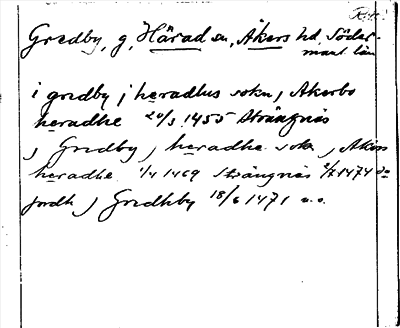 Gredby, g, Härad sn, Åkers hd, Söder-
manl. län
i gredby j heradhus sokn, Akerbo
heradhe 20/3 1455 Strängnäs
j Gredby j heradhe sokn, Akers
heradhe 1/4 1469 Strängnäs 2/7 1474 do
jordh j Gredhby 18/6 1471 u.o.